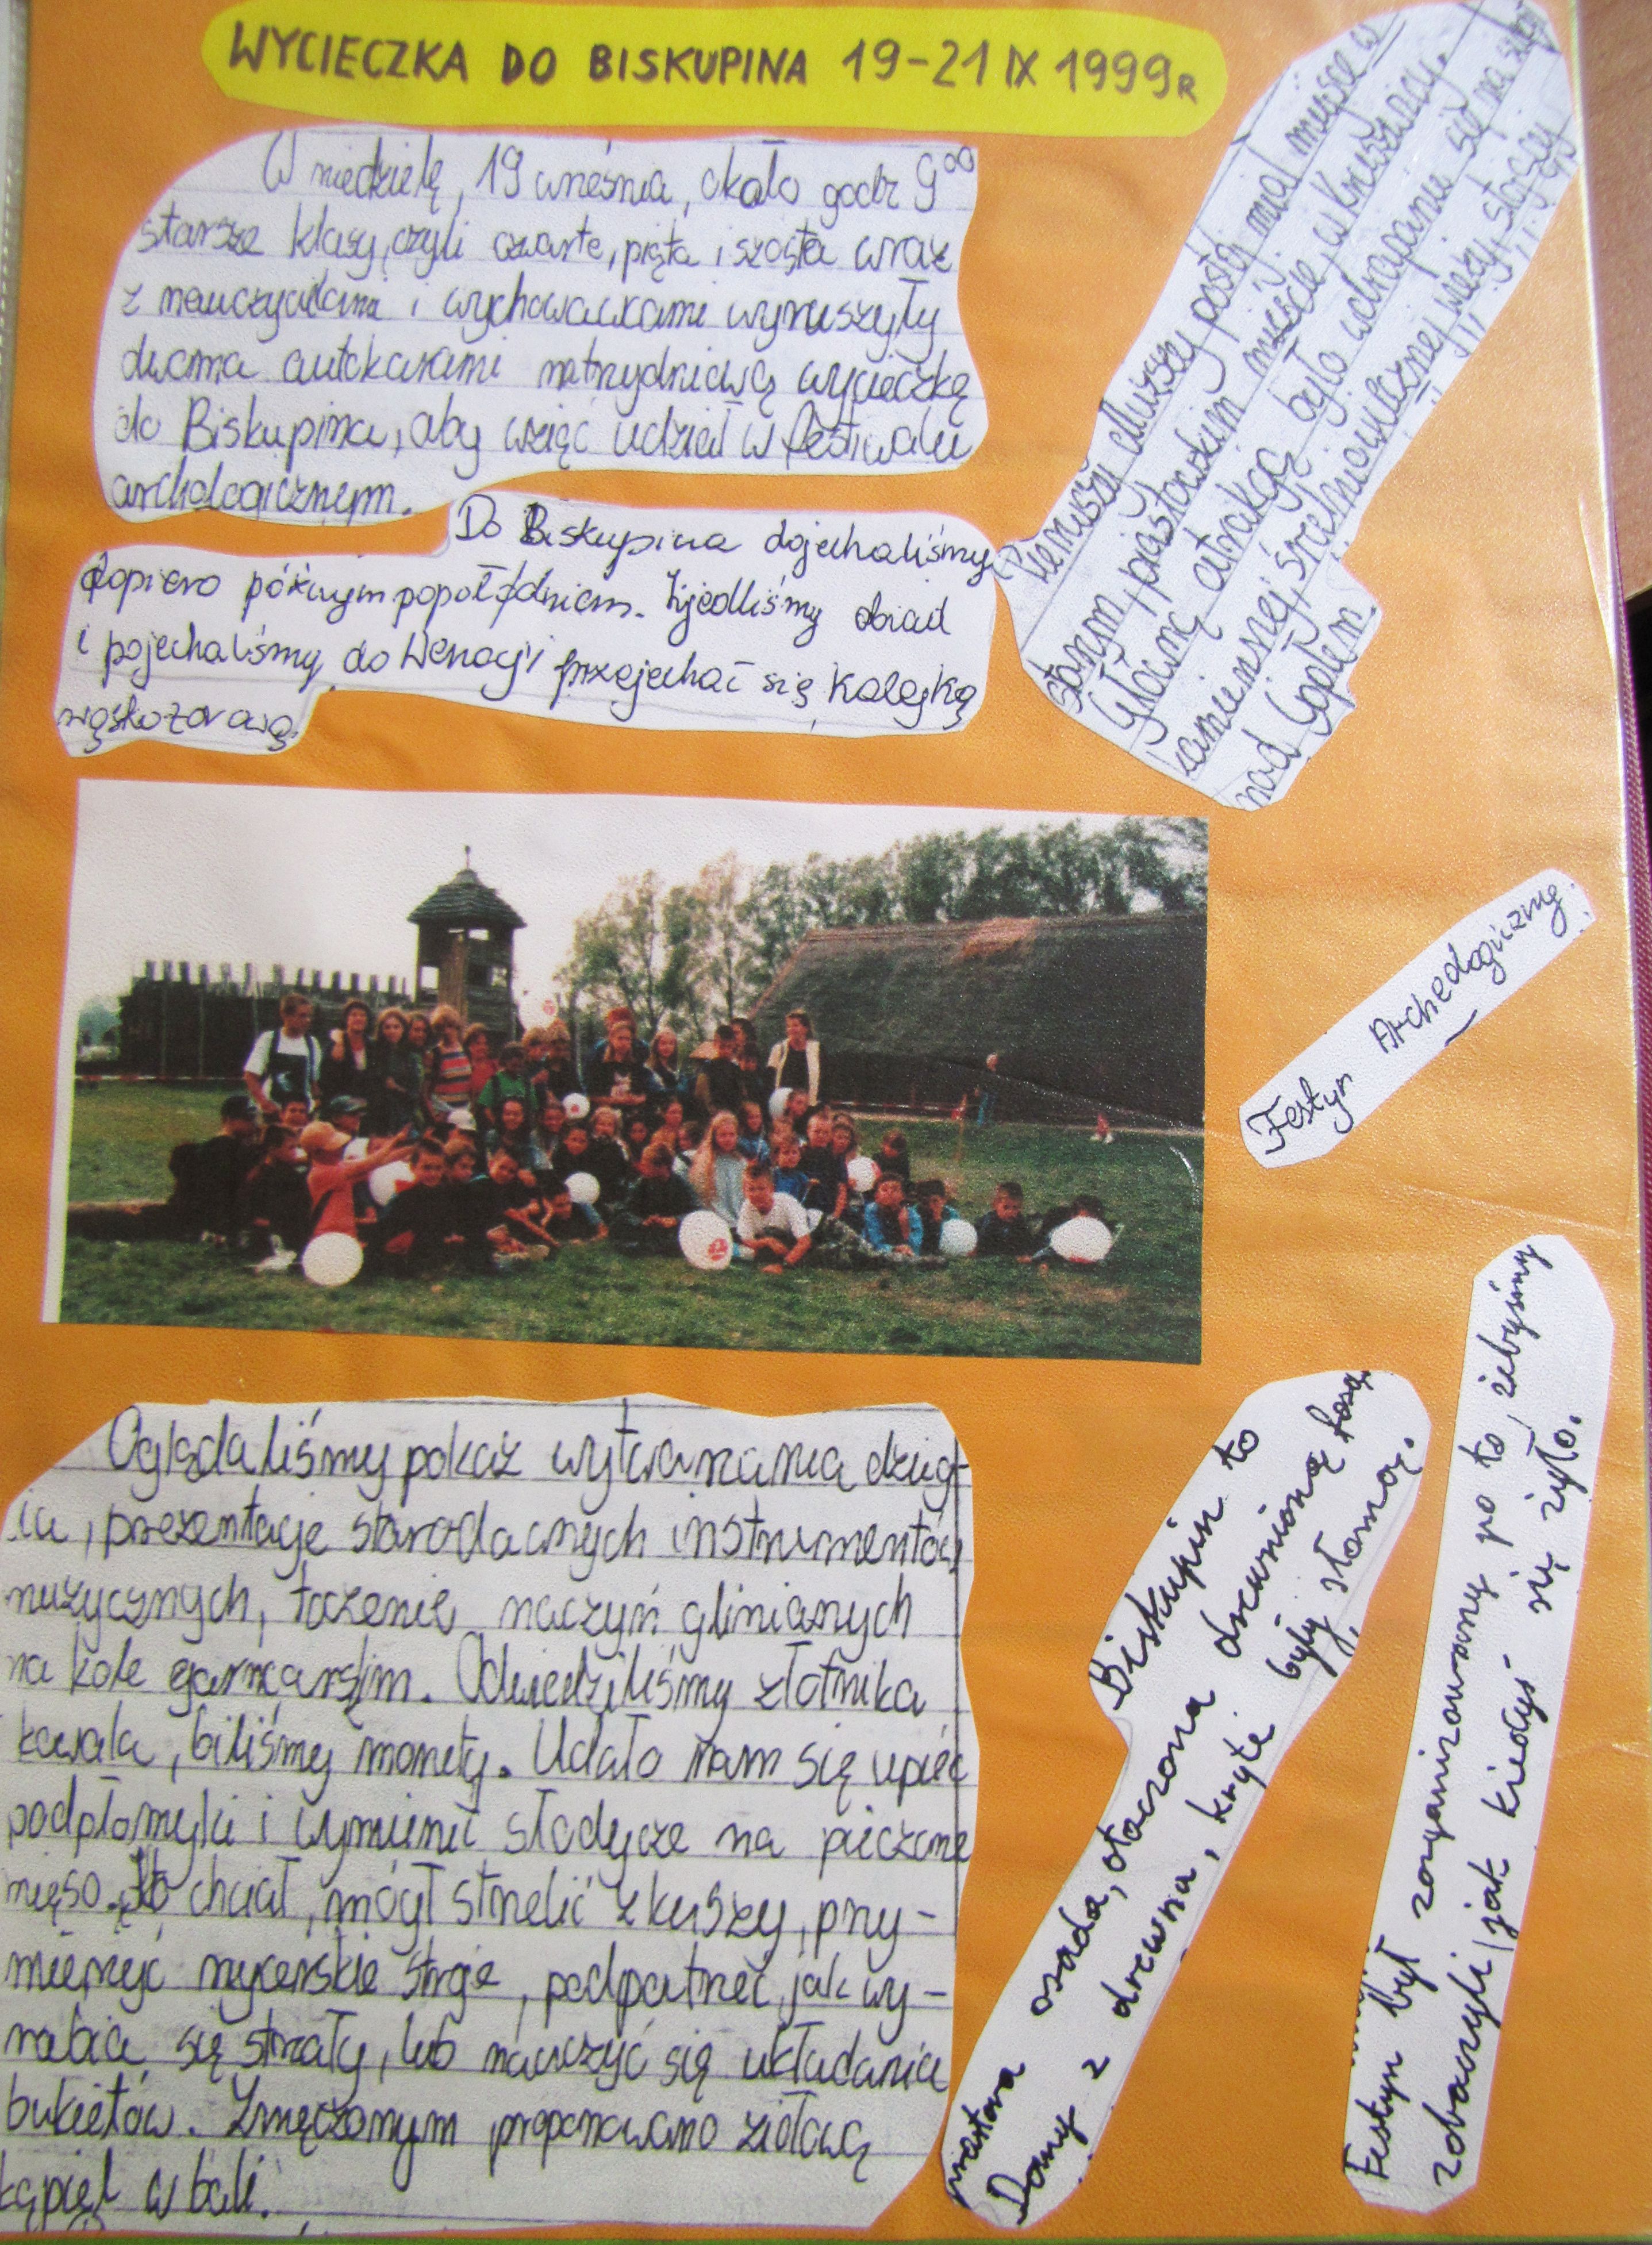 WYCIECZKA DO BISKUPINA 19-21 IX 1999R
W niedzielę, 19 września, około godz 9⁰⁰
starsze klasy, czyli czwarte, piąta i szósta wraz
z nauczycielami i wychowawcami wyruszyły
dwoma autokarami na trzydniową wycieczkę
do Biskupina, aby wziąć udział w festiwalu
archologicznym.
Do Biskupina dojechaliśmy
dopiero późnym popołudniem. Zjedliśmy obiad
i pojechaliśmy do Wenecji przejechać się kolejką
wąskotorową.
Pierwszy dłuższy postój miał miejsce w
starym, piastowskim mieście, w Kruszwicy.
Główną atrakcją było wdrapanie się na
kamiennej, średniowiecznej wieży, stojącej
nad Gopłem.
Festyn Archeologiczny.
Oglądaliśmy pokaz wytwarzania dzieg-
ciu, prezentację starodawnych instrumentów
muzycznych, toczenie naczyń glinianych
na kole garncarskim. Odwiedziliśmy złotnika
kowala, biliśmy monety. Udało nam się upiec
podpłomyki i wymienić słodycze na pieczone
mięso. Kto chciał, mógł strzelić z kuszy, przy-
mierzyć rycerskie stroje, podpatrzeć, jak wy-
rabia się strzały, lub nauczyć się układania
bukietów. Zmęczonym proponowano ziołową
kąpiel w bali.
Biskupin to
prastara osada, otoczona drewnianą fosą.
Domy z drewna, kryte były słomą.
Festyn był zorganizowany po to, żebyśmy
zobaczyli, jak kiedyś się żyło.